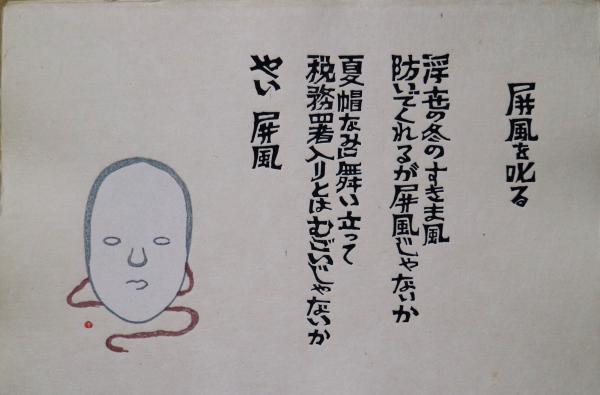 屏風を叱る
浮世の冬のすきま風
防いでくれるが屏風じゃないか
夏帽なみに舞い立って
税務署入りとはむごいじゃないか
やい 屏風